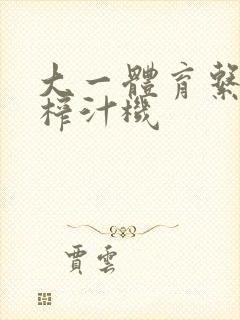 大一體育繫
榨汁機
賈雲